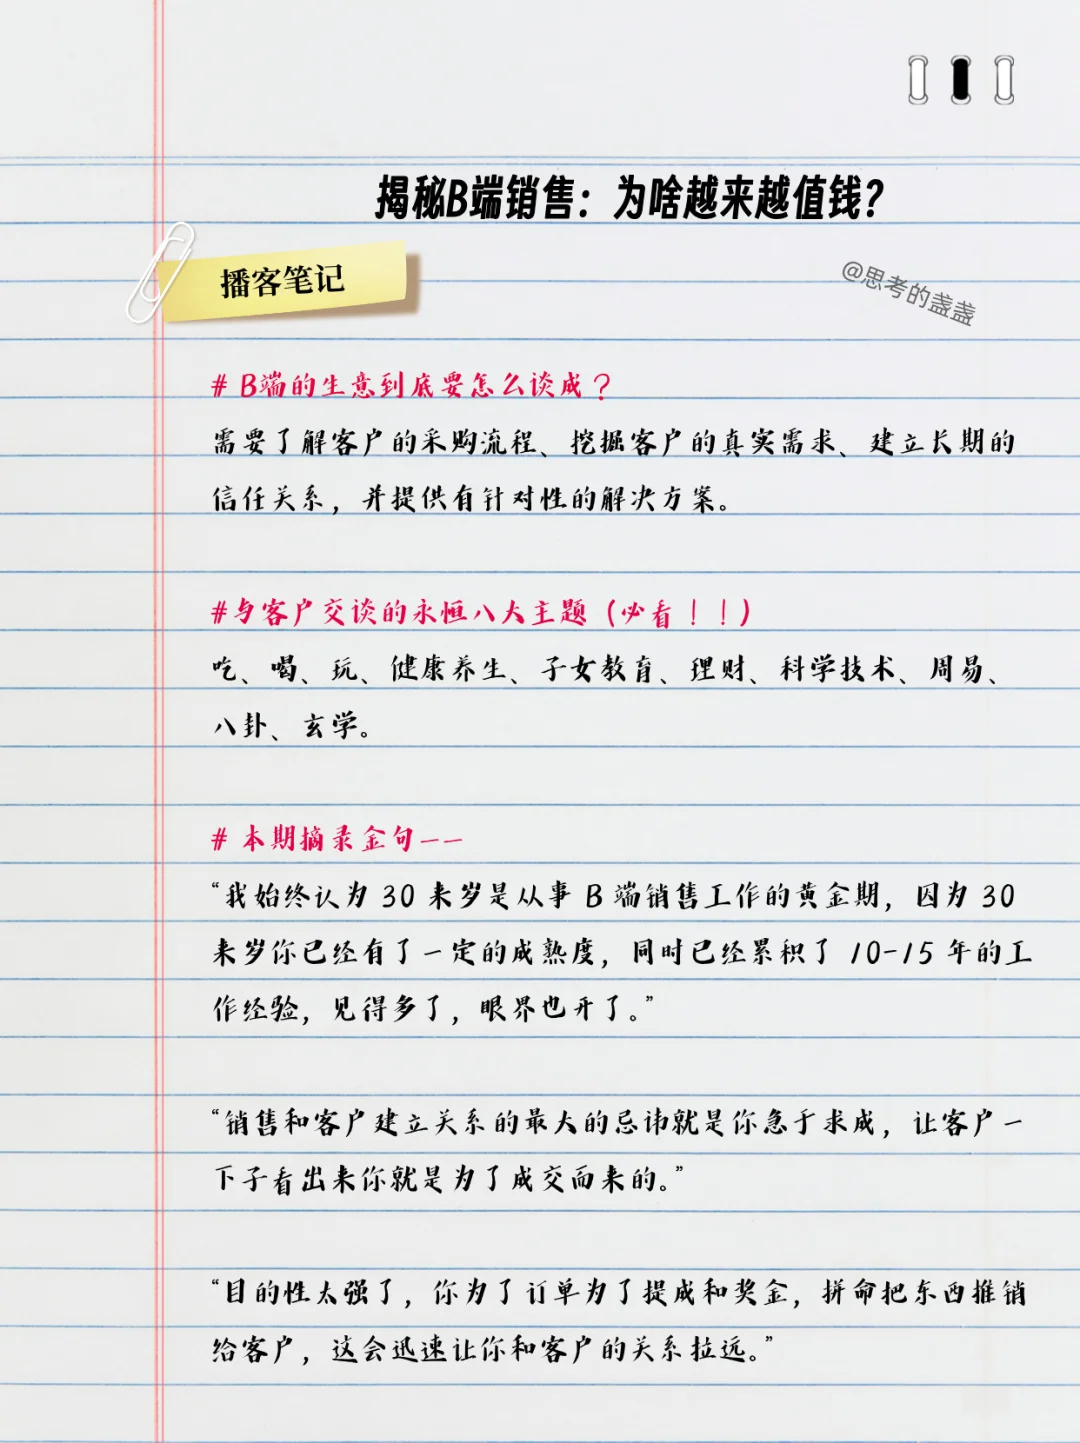 揭秘B端销售：为啥越来越值钱？
播客笔记
@思考的盏盏
# B端的生意到底要怎么谈成？
需要了解客户的采购流程、挖掘客户的真实需求、建立长期的
信任关系，并提供有针对性的解决方案。
#与客户交谈的永恒八大主题（必看！！）
吃、喝、玩、健康养生、子女教育、理财、科学技术、周易、
八卦、玄学。
# 本期摘录金句——
“我始终认为 30 来岁是从事 B 端销售工作的黄金期，因为 30
来岁你已经有了一定的成熟度，同时已经累积了 10-15 年的工
作经验，见得多了，眼界也开了。”
“销售和客户建立关系的最大的忌讳就是你急于求成，让客户一
下子看出来你就是为了成交而来的。”
“目的性太强了，你为了订单为了提成和奖金，拼命把东西推销
给客户，这会迅速让你和客户的关系拉远。”